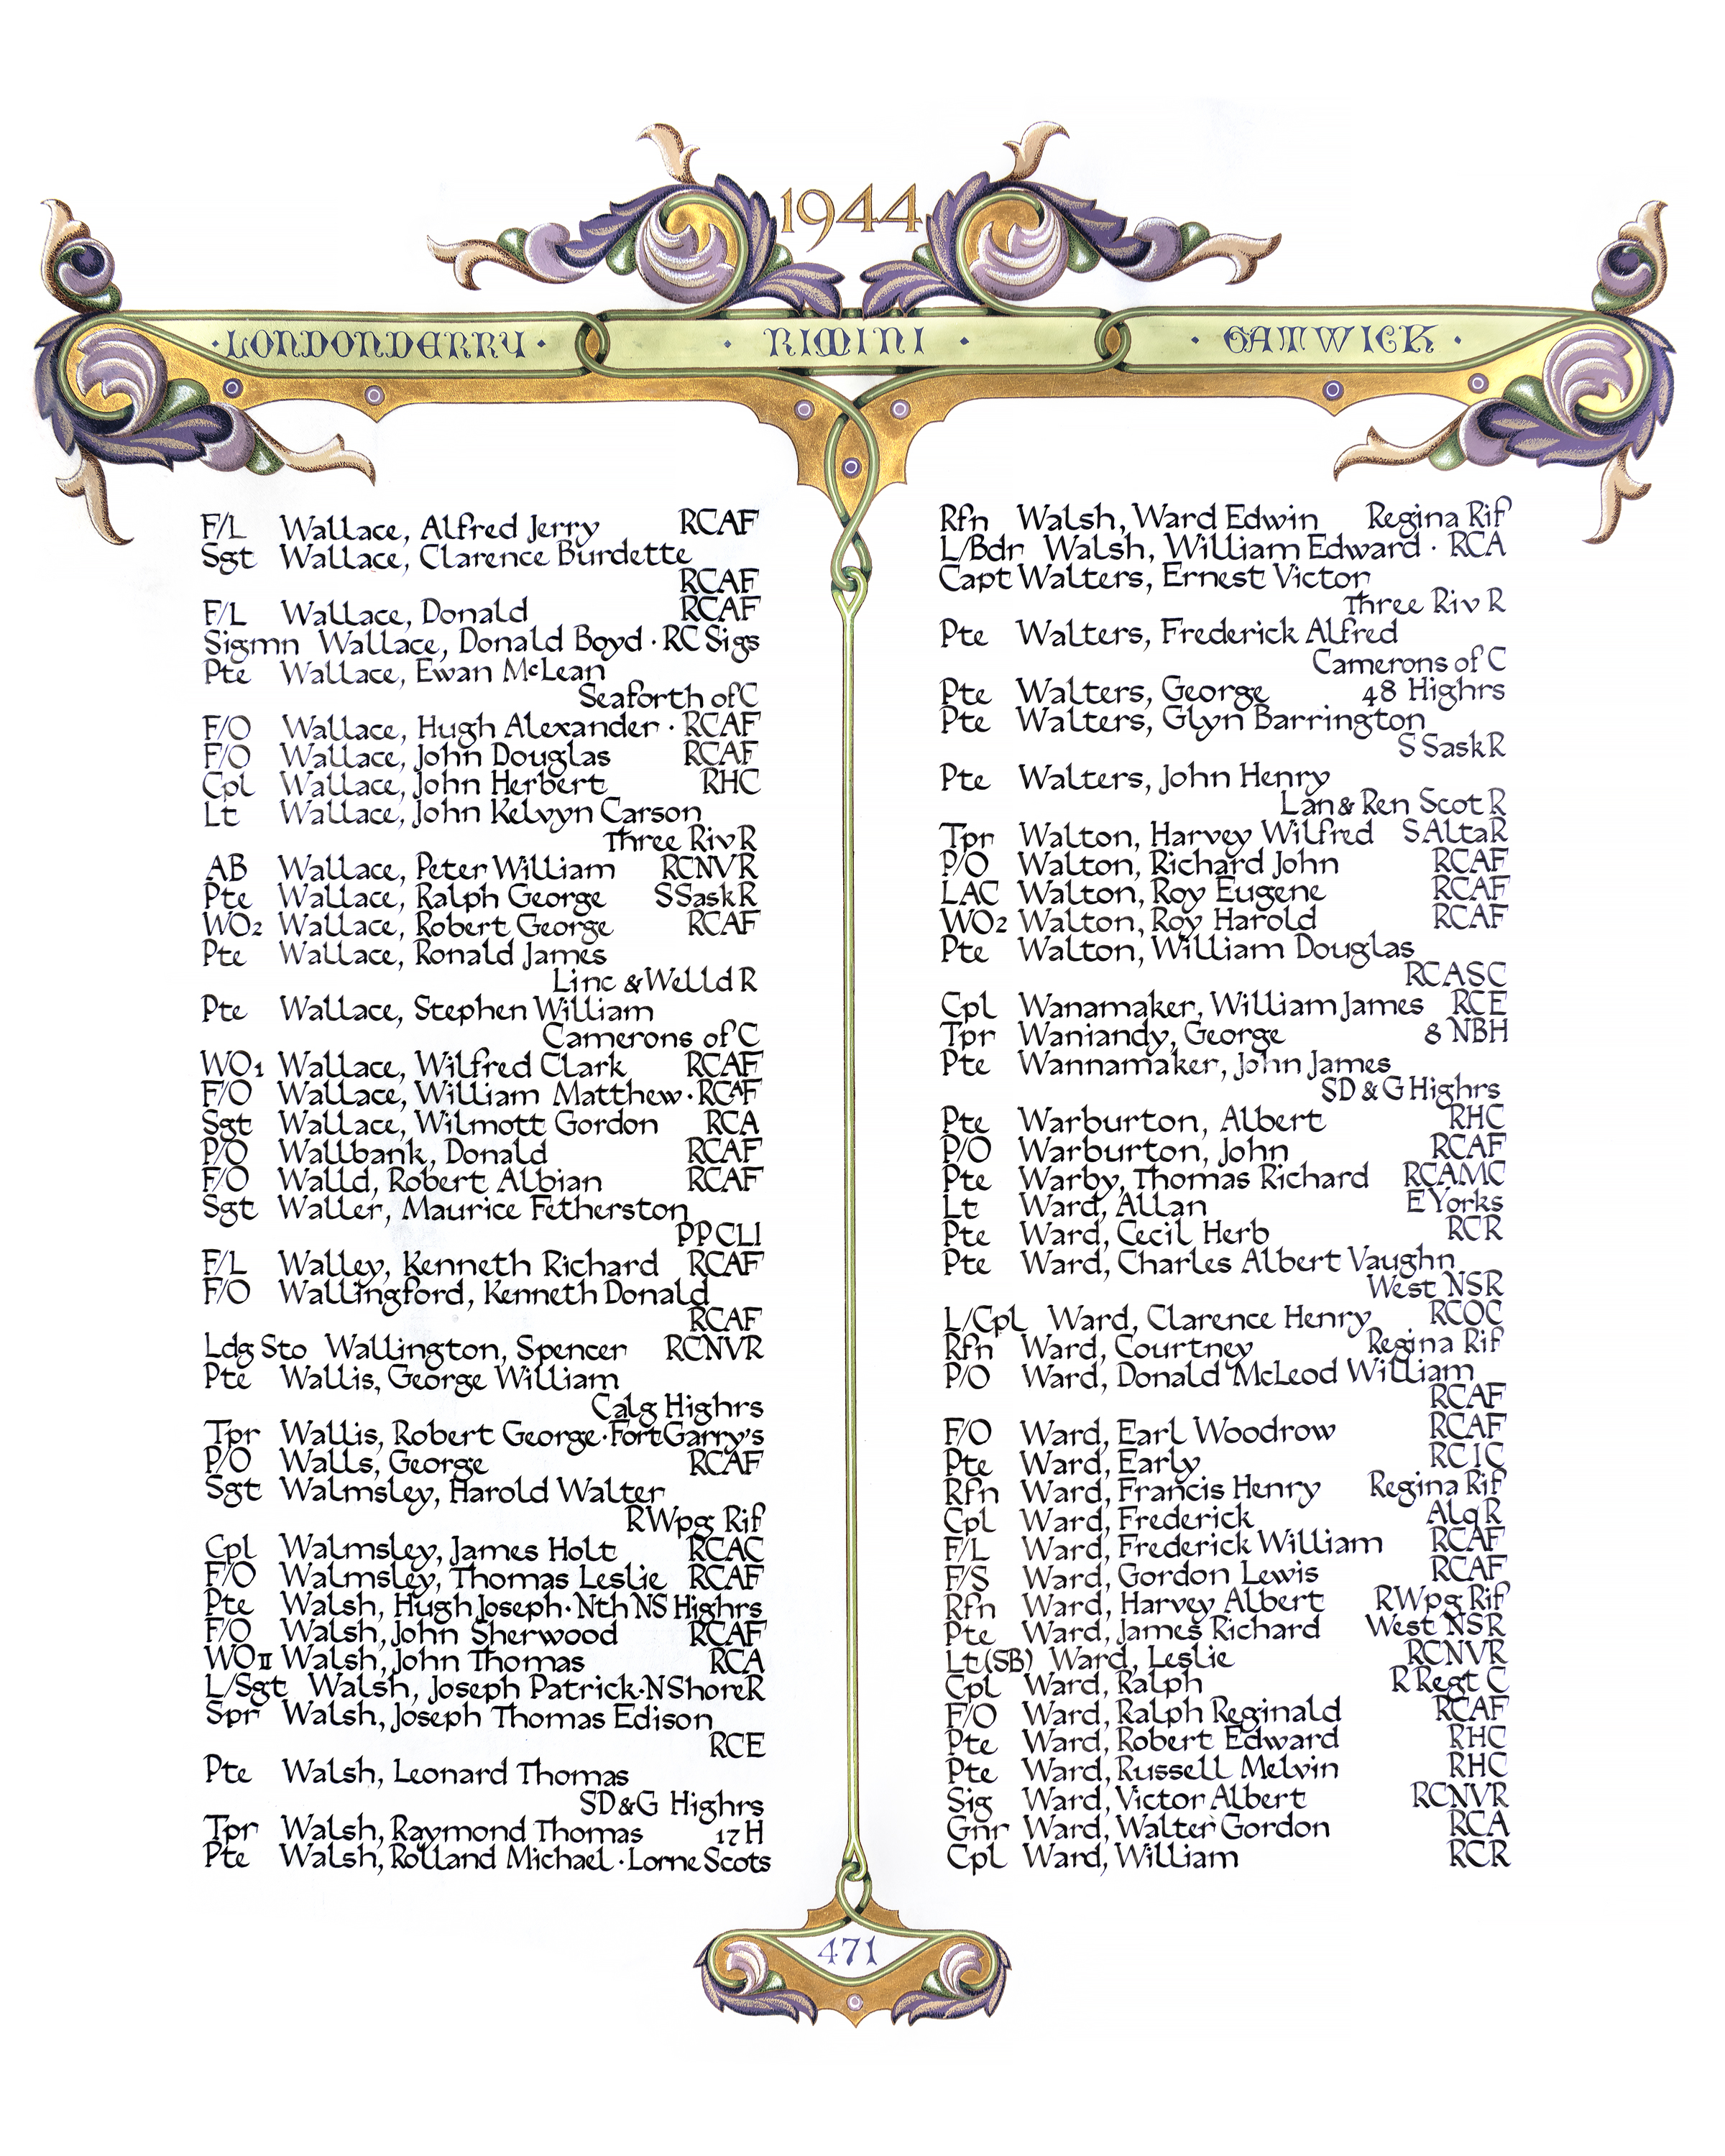 1944
·LONDONDERRY·
· RIMINI ·
· GATWICK ·
F/L Wallace, Alfred Jerry RCAF
Sgt Wallace, Clarence Burdette
RCAF
F/L Wallace, Donald RCAF
Sigmn Wallace, Donald Boyd · RC Sigs
Pte Wallace, Ewan McLean
Seaforth of C
F/O Wallace, Hugh Alexander · RCAF
F/O Wallace, John Douglas RCAF
Cpl Wallace, John Herbert RHC
Lt Wallace, John Kelvyn Carson
Three Riv R
AB Wallace, Peter William RCNVR
Pte Wallace, Ralph George S Sask R
WO2 Wallace, Robert George RCAF
Pte Wallace, Ronald James
Linc & Welld R
Pte Wallace, Stephen William
Camerons of C
WO1 Wallace, Wilfred Clark RCAF
F/O Wallace, William Matthew · RCAF
Sgt Wallace, Wilmott Gordon RCA
P/O Wallbank, Donald RCAF
F/O Walld, Robert Albian RCAF
Sgt Waller, Maurice Fetherston
PPCLI
F/L Walley, Kenneth Richard RCAF
F/O Wallingford, Kenneth Donald
RCAF
Ldg Sto Wallington, Spencer RCNVR
Pte Wallis, George William
Calg Highrs
Tpr Wallis, Robert George · Fort Garry's
P/O Walls, George RCAF
Sgt Walmsley, Harold Walter
R Wpg Rif
Cpl Walmsley, James Holt RCAC
F/O Walmsley, Thomas Leslie RCAF
Pte Walsh, Hugh Joseph · Nth NS Highrs
F/O Walsh, John Sherwood RCAF
WO II Walsh, John Thomas RCA
L/Sgt Walsh, Joseph Patrick · N Shore R
Spr Walsh, Joseph Thomas Edison
RCE
Pte Walsh, Leonard Thomas
SD&G Highrs
Tpr Walsh, Raymond Thomas 17 H
Pte Walsh, Rolland Michael · Lorne Scots
Rfn Walsh, Ward Edwin Regina Rif
L/Bdr Walsh, William Edward · RCA
Capt Walters, Ernest Victor
Three Riv R
Pte Walters, Frederick Alfred
Camerons of C
Pte Walters, George 48 Highrs
Pte Walters, Glyn Barrington
S Sask R
Pte Walters, John Henry
Lan & Ren Scot R
Tpr Walton, Harvey Wilfred S Alta R
P/O Walton, Richard John RCAF
LAC Walton, Roy Eugene RCAF
WO2 Walton, Roy Harold RCAF
Pte Walton, William Douglas
RCASC
Cpl Wanamaker, William James RCE
Tpr Waniandy, George 8 NBH
Pte Wannamaker, John James
SD & G Highrs
Pte Warburton, Albert RHC
P/O Warburton, John RCAF
Pte Warby, Thomas Richard RCAMC
Lt Ward, Allan E Yorks
Pte Ward, Cecil Herb RCR
Pte Ward, Charles Albert Vaughn
West NSR
L/Cpl Ward, Clarence Henry RCOC
Rfn Ward, Courtney Regina Rif
P/O Ward, Donald McLeod William
RCAF
F/O Ward, Earl Woodrow RCAF
Pte Ward, Early RCIC
Rfn Ward, Francis Henry Regina Rif
Cpl Ward, Frederick Alq R
F/L Ward, Frederick William RCAF
F/S Ward, Gordon Lewis RCAF
Rfn Ward, Harvey Albert R Wpg Rif
Pte Ward, James Richard West NSR
Lt (SB) Ward, Leslie RCNVR
Cpl Ward, Ralph R Regt C
F/O Ward, Ralph Reginald RCAF
Pte Ward, Robert Edward RHC
Pte Ward, Russell Melvin RHC
Sig Ward, Victor Albert RCNVR
Gnr Ward, Walter Gordon RCA
Cpl Ward, William RCR
471